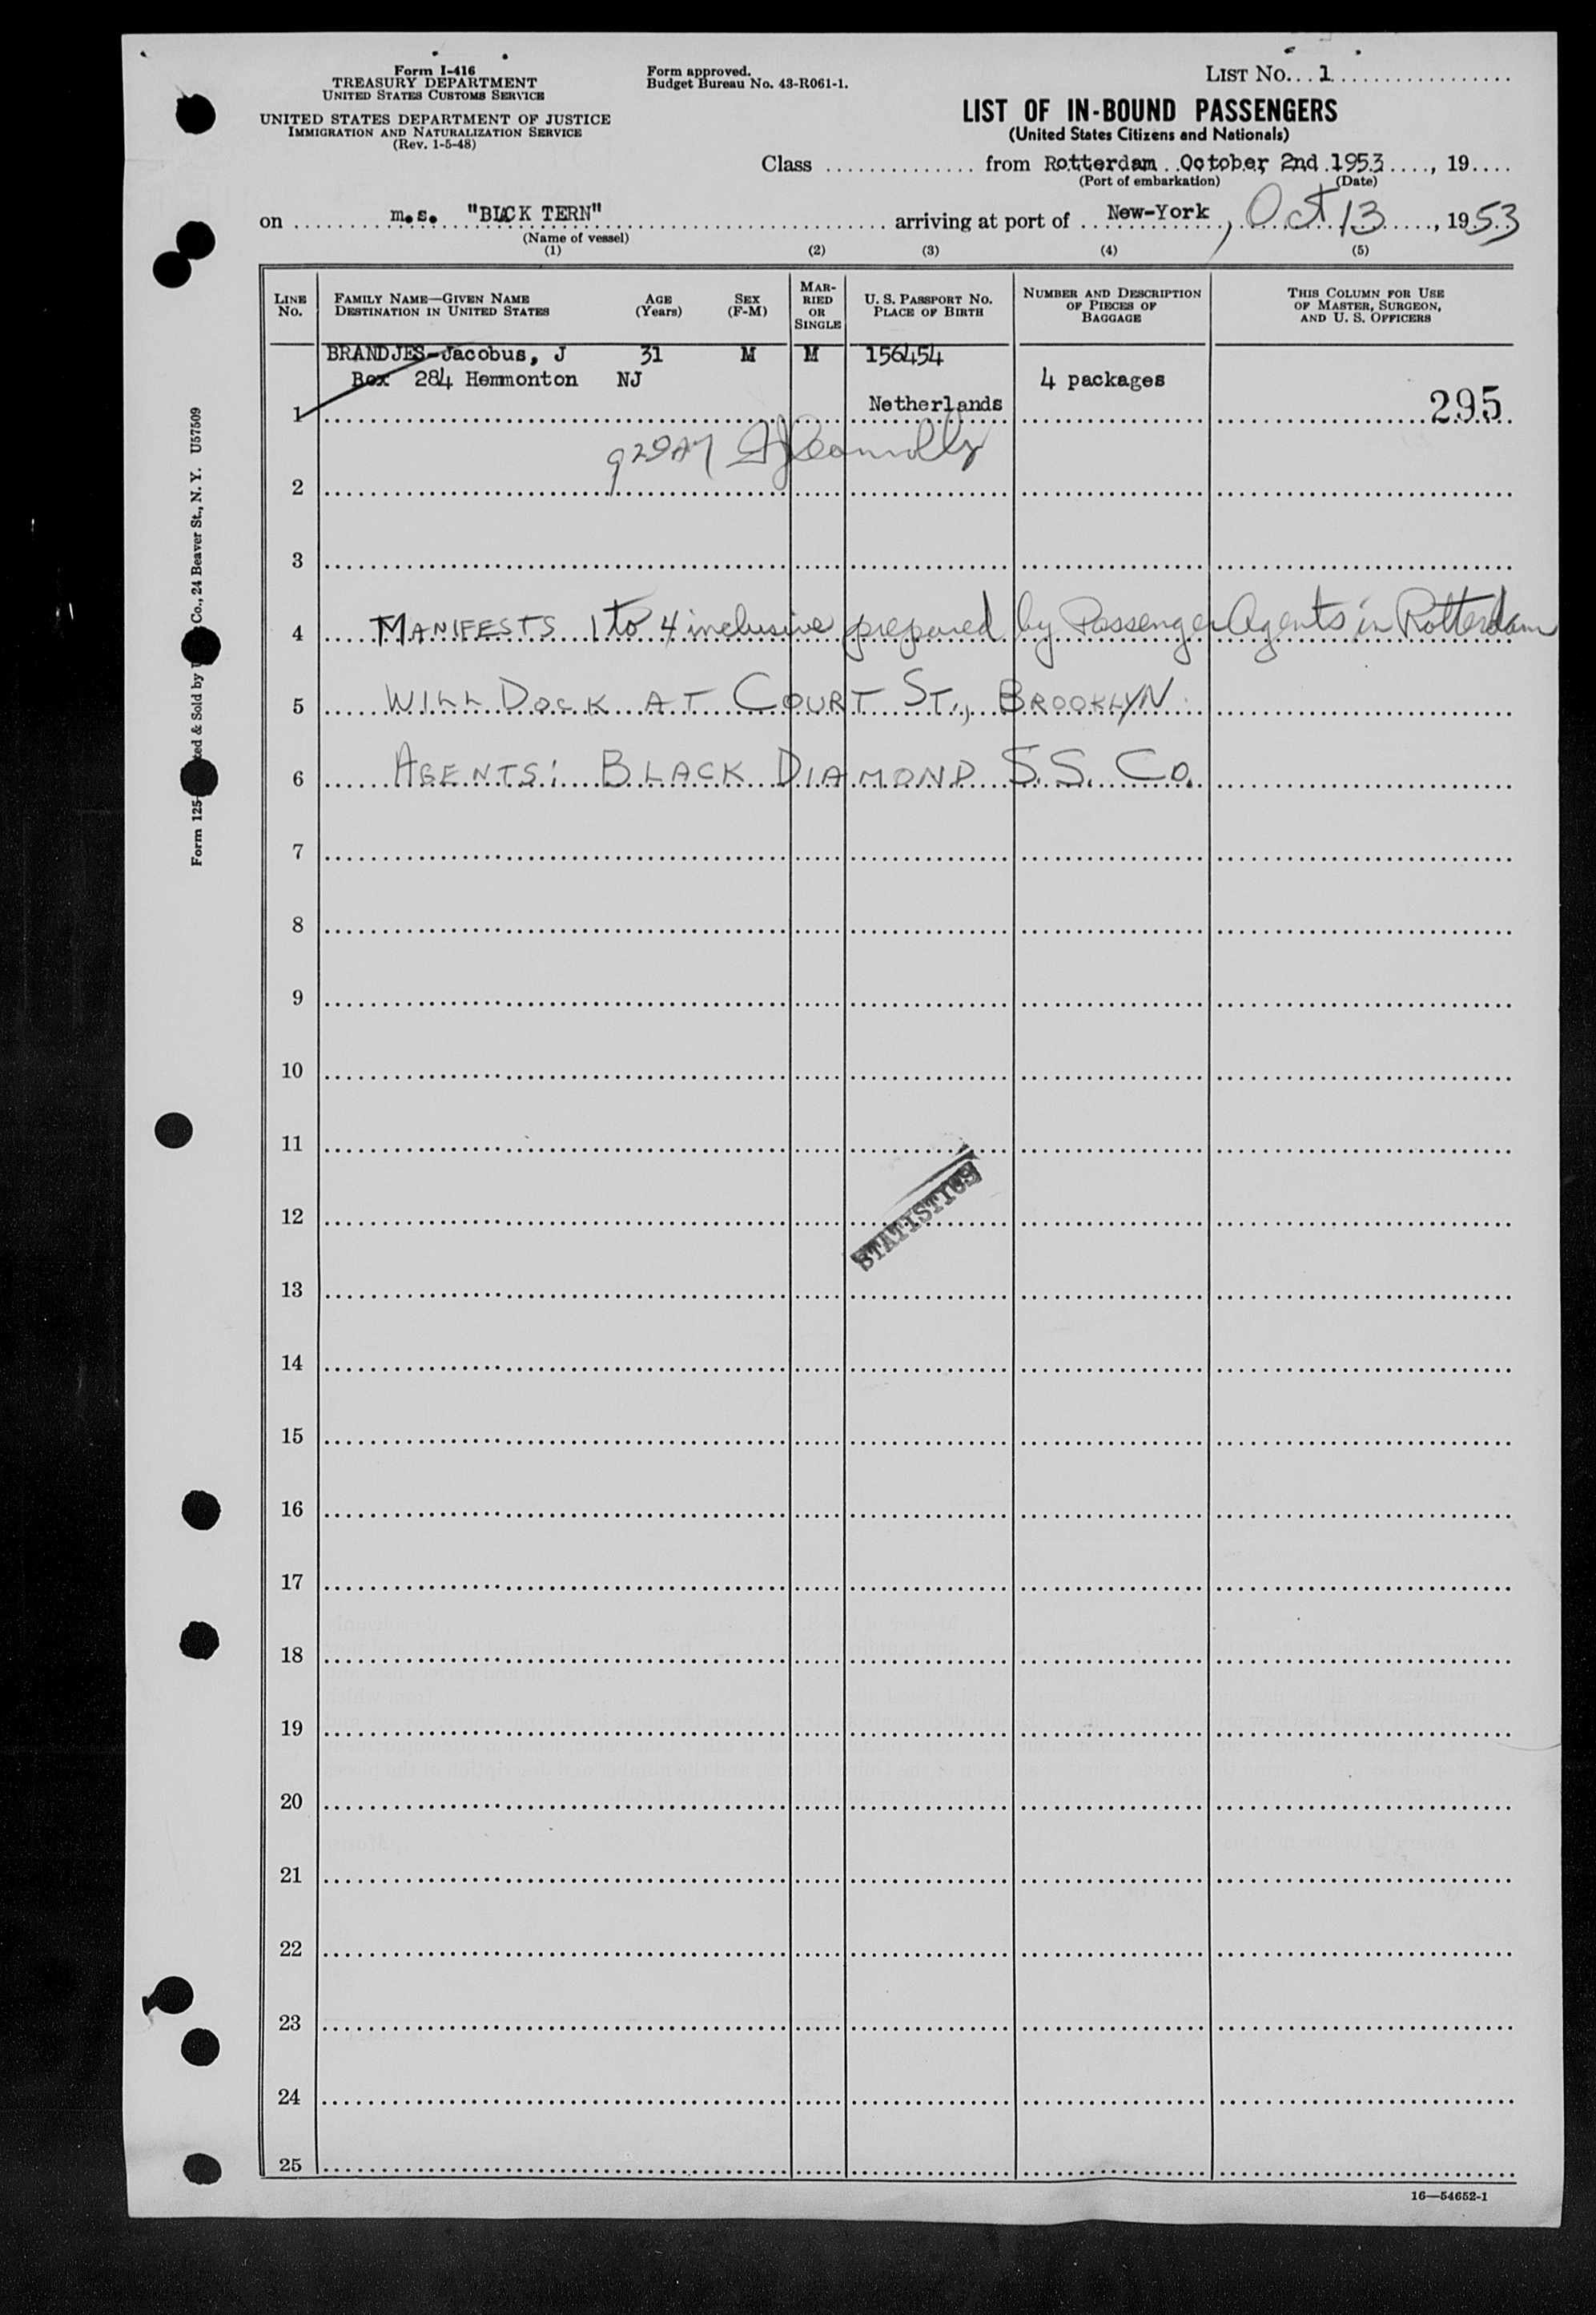 Form I-416
TREASURY DEPARTMENT
UNITED STATES CUSTOMS SERVICE
UNITED STATES DEPARTMENT OF JUSTICE
IMMIGRATION AND NATURALIZATION SERVICE
(Rev. 1-5-48)
Form approved.
Budget Bureau No. 43-R061-1.
LIST No. 1
LIST OF IN-BOUND PASSENGERS
(United States Citizens and Nationals)
Class from Rotterdam October 2nd 1953, 19
(Port of embarkation) (Date)
on m.s. "BLCK TERN" arriving at port of New-York, Oct 13, 1953
(Name of vessel)
(1) (2) (3) (4) (5)
LINE No. FAMILY NAME—GIVEN NAME DESTINATION IN UNITED STATES AGE (Years) SEX (F-M) MARRIED OR SINGLE U. S. PASSPORT NO. PLACE OF BIRTH NUMBER AND DESCRIPTION OF PIECES OF BAGGAGE THIS COLUMN FOR USE OF MASTER, SURGEON, AND U. S. OFFICERS
BRANDJES-Jacobus, J 31 M M 156454
Box 284 Hemmonton NJ 4 packages
1 Netherlands 295
2
3
4 MANIFESTS 1 to 4 inclusive prepared by Passenger Agents in Rotterdam
5 WILL DOCK AT COURT ST., BROOKLYN
6 AGENTS: BLACK DIAMOND S.S. CO.
7
8
9
10
11
12
STATISTICS
13
14
15
16
17
18
19
20
21
22
23
24
25
16—54652-1
Form 125 ted & Sold by U Co., 24 Beaver St., N. Y. U57509